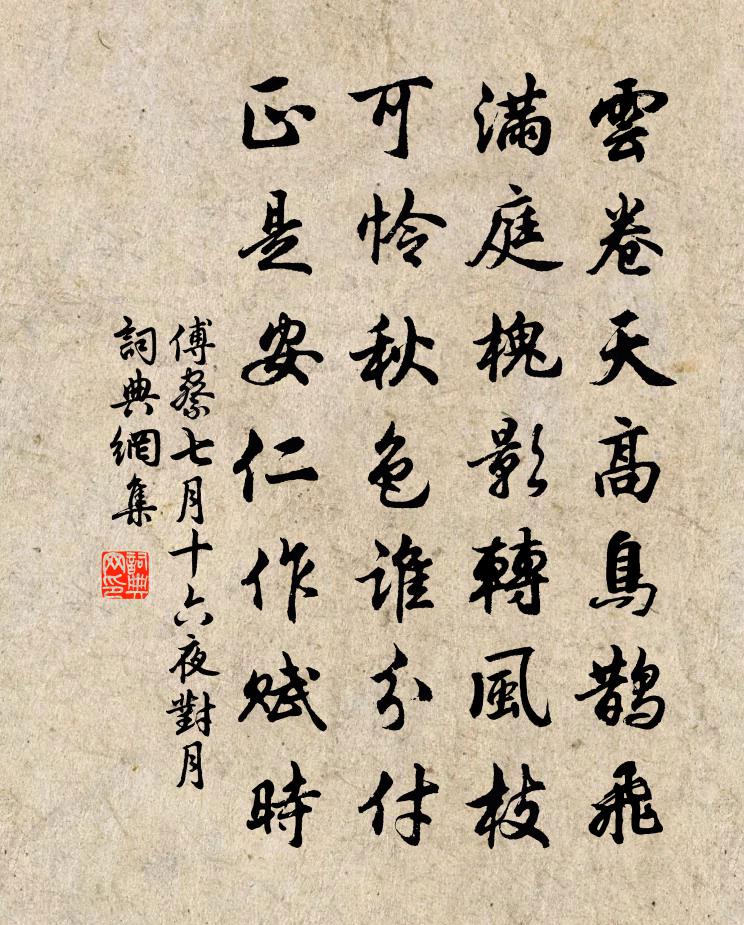 雲卷天高烏鵲飛
滿庭槐影轉風枝
可怜秋色誰分付
正是安仁作賦時
傅察七月十六夜對月
詞典網集
詞典网印